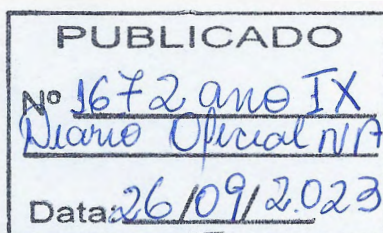 PUBLICADO
Nº 1672 ano IX
Diario Oficial N/A
Data: 26/09/2023